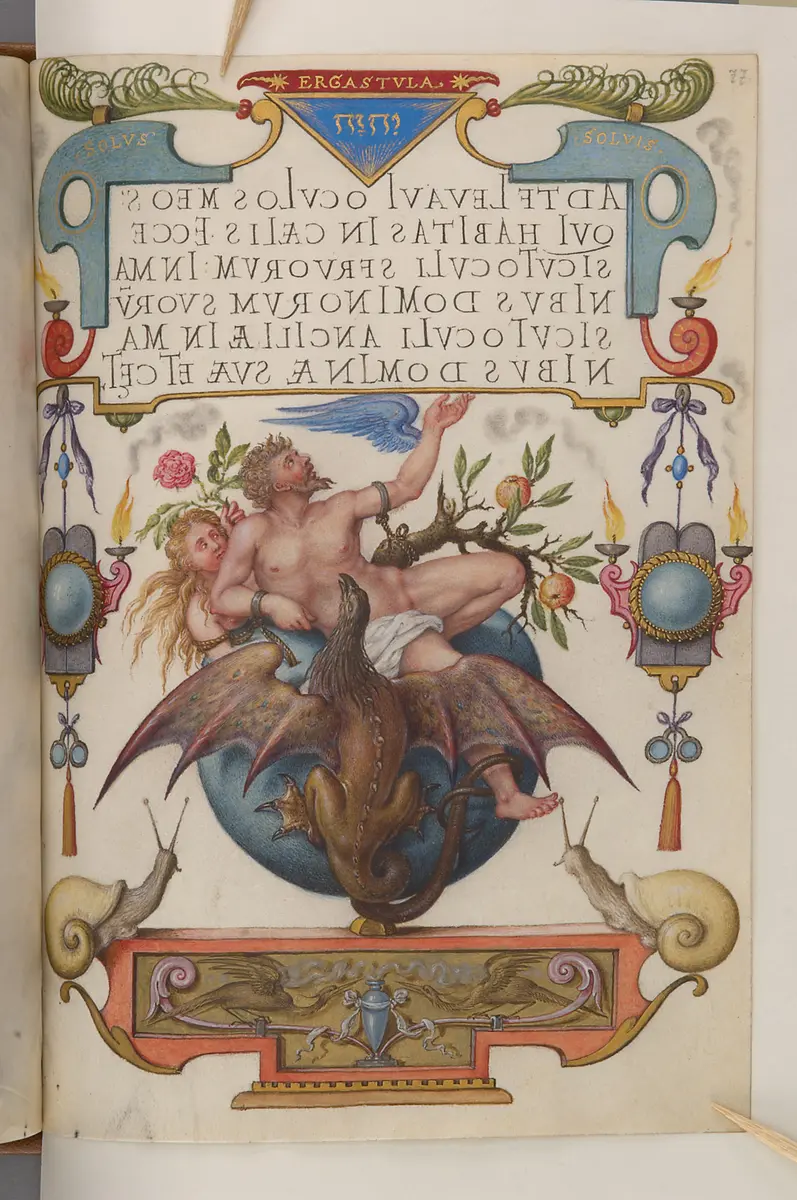 ERGASTVLA
יהוה
SOLVS SOLVIS
AD TE LEVAVI OCVLOS MEOS:
QVI HABITAS IN CÆLIS. ECCE
SICVT OCVLI SERVORVM: IN MA
NIBVS DOMINORVM SVORṼ
SICVT OCVLI ANCILLÆ IN MA
NIBVS DOMINÆ SVÆ ETCET